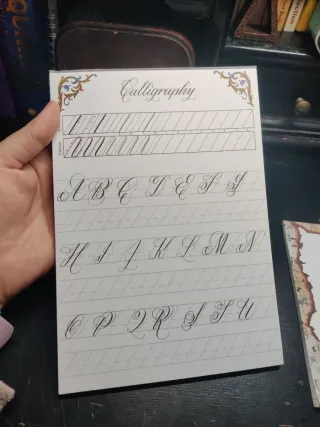 Calligraphy
A B C D E F G
H I J K L M N
O P Q R S T U